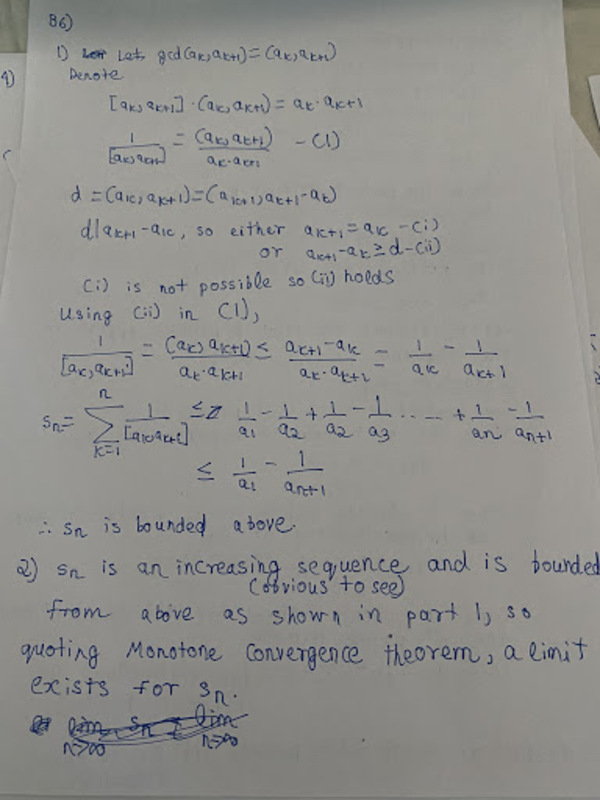 B6)
1) Let, gcd(ak,ak+1)=(ak,ak+1)
Denote
[ak,ak+1]·(ak,ak+1)=ak·ak+1
1/[ak,ak+1] = (ak,ak+1)/ak·ak+1 -(1)
d=(ak,ak+1)=(ak+1,ak+1-ak)
d|ak+1-ak, so either ak+1=ak -(i)
or ak+1-ak≥d-(ii)
(i) is not possible so (ii) holds
Using (ii) in (1),
1/[ak,ak+1] = (ak,ak+1)/ak·ak+1 ≤ ak+1-ak/ak·ak+1 = 1/ak - 1/ak+1
sn= n∑k=1 1/[ak,ak+1] ≤ 1/a1 - 1/a2 + 1/a2 - 1/a3 ..... + 1/an - 1/an+1
≤ 1/a1 - 1/an+1
∴ sn is bounded above.
2) sn is an increasing sequence and is bounded
(obvious to see)
from above as shown in part 1, so
quoting Monotone Convergence theorem, a limit
exists for sn.
lim sn = lim
n→∞ n→∞